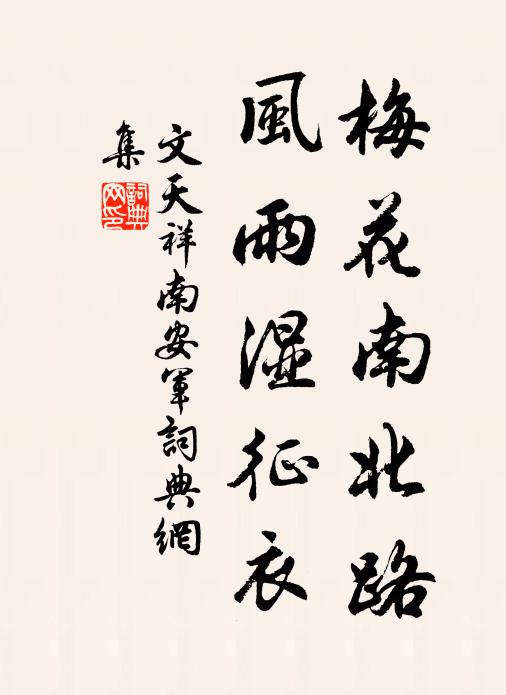 梅花南北路
風雨濕征衣
文天祥南安軍詞典網
集
詞典網印